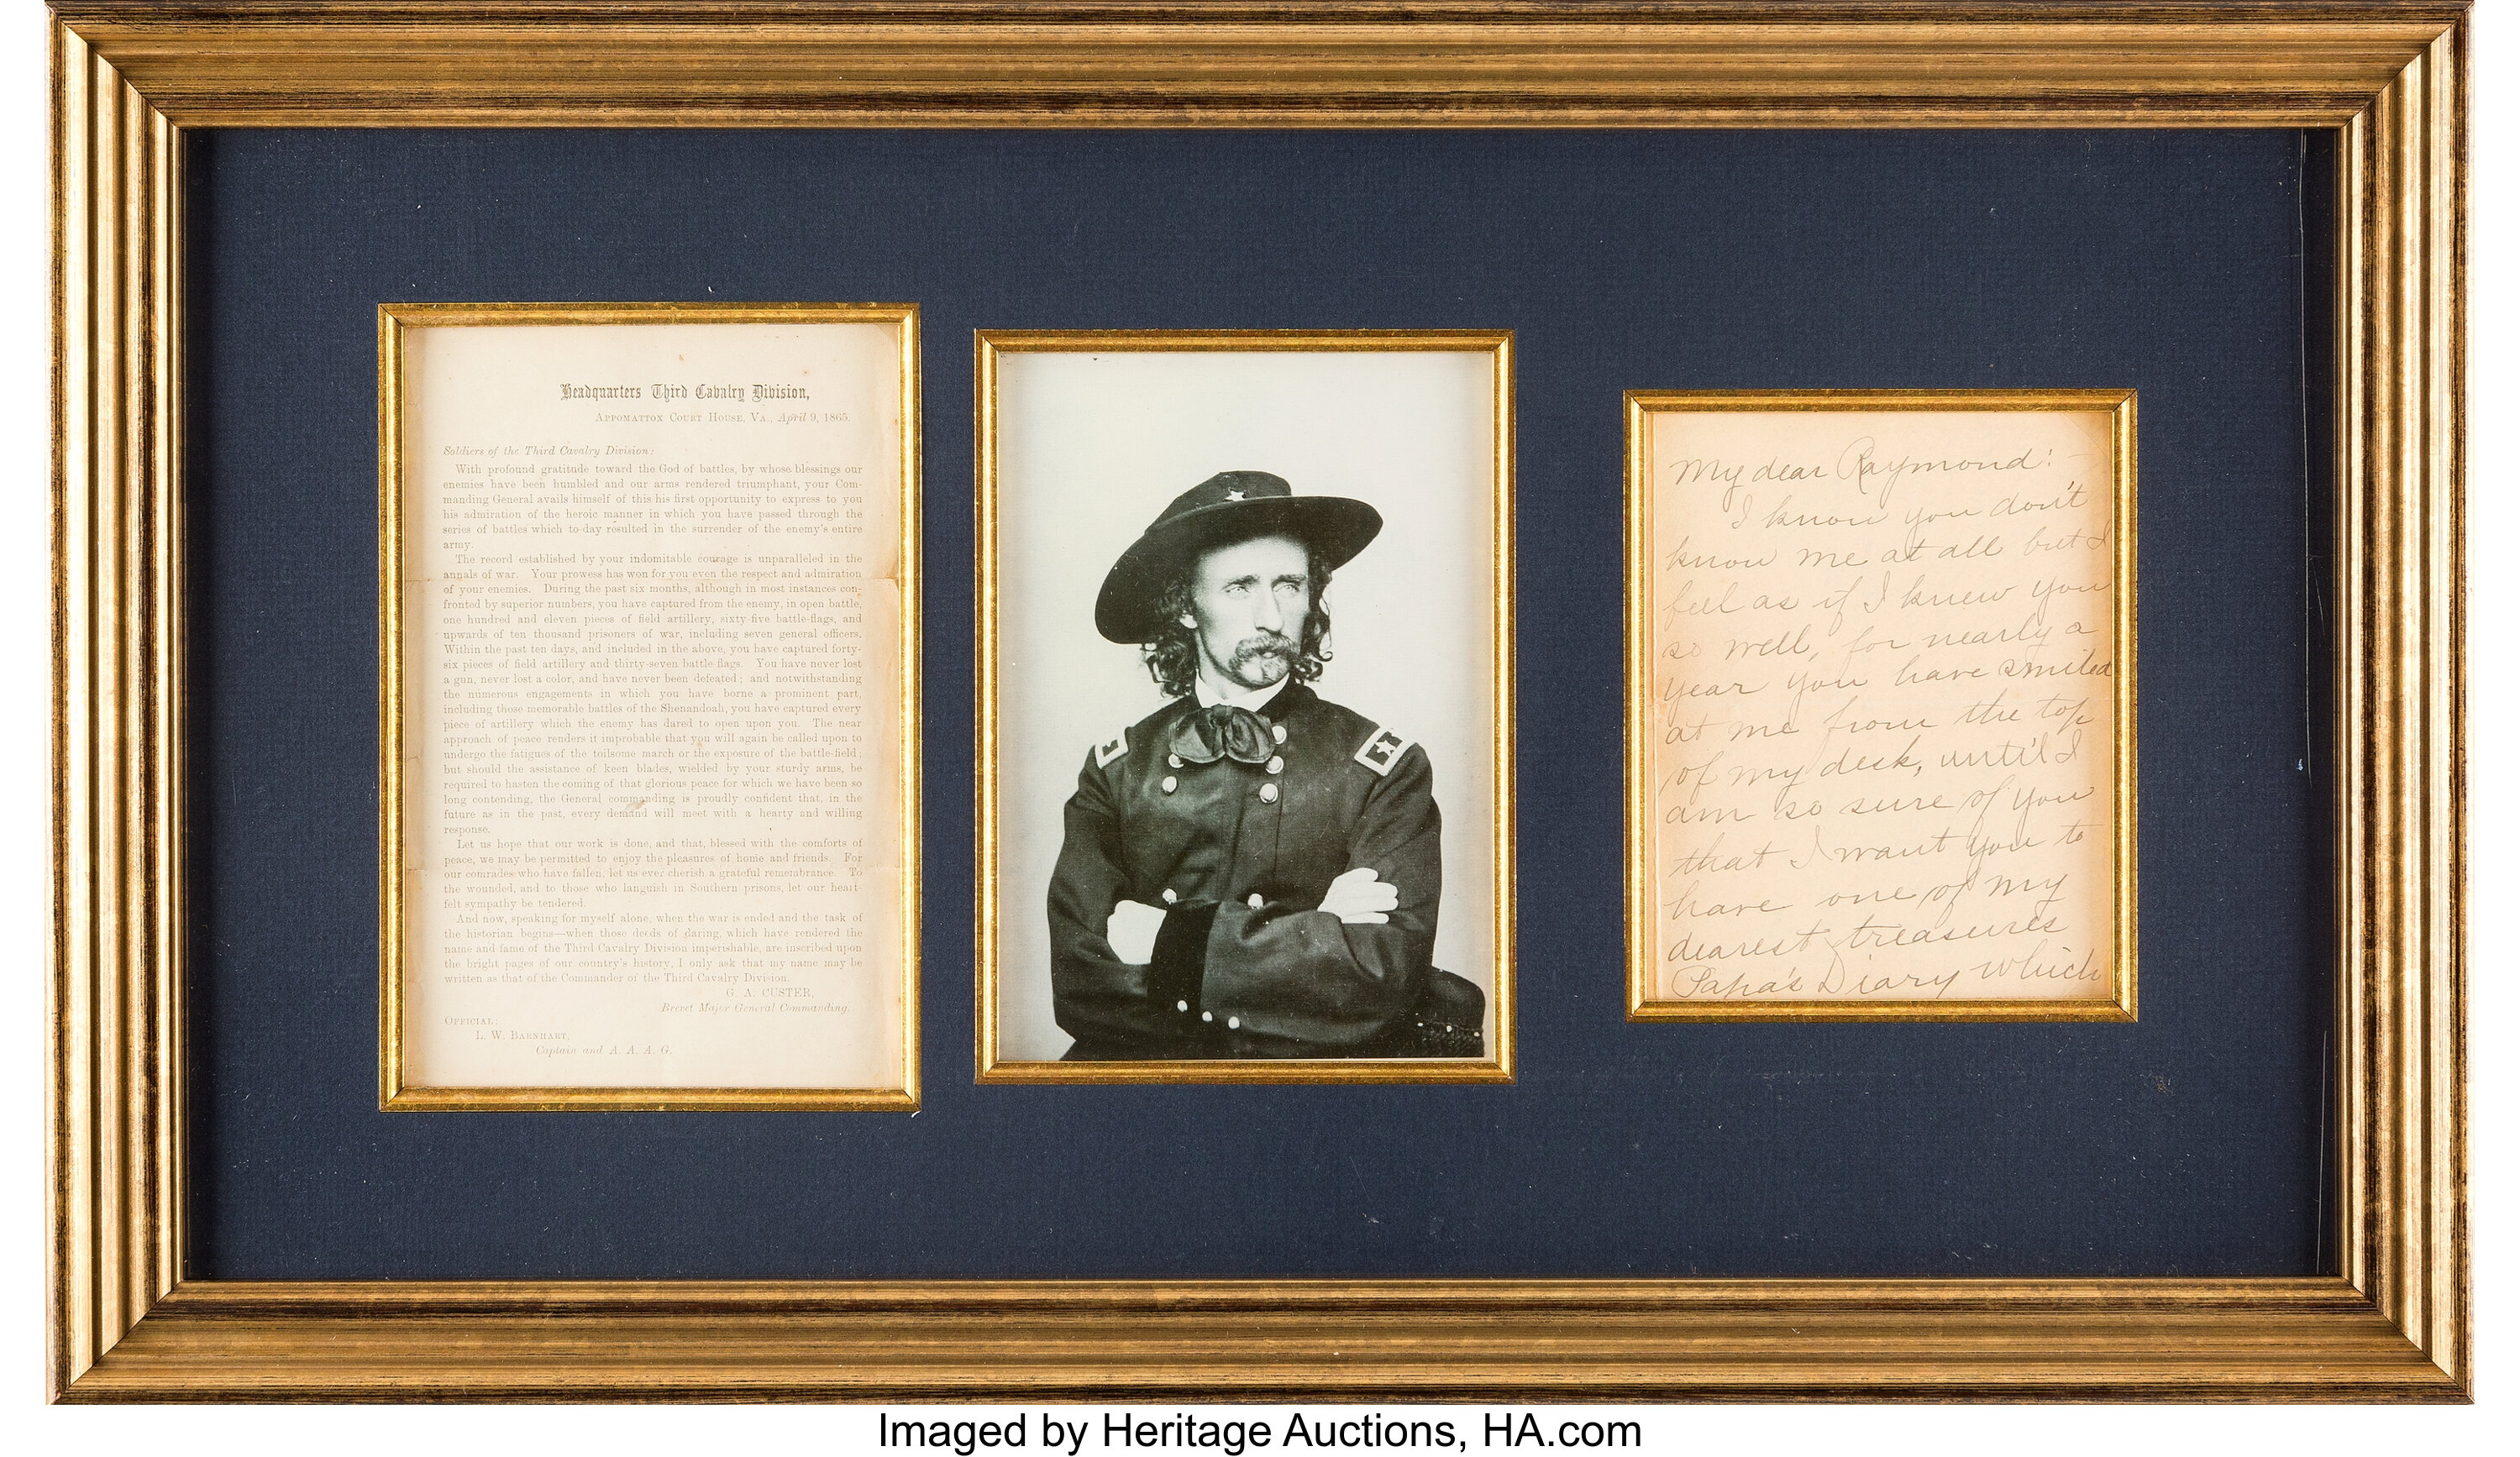 Headquarters Third Cavalry Division,
APPOMATTOX COURT HOUSE, VA., April 9, 1865.
Soldiers of the Third Cavalry Division:
With profound gratitude toward the God of battles, by whose blessings our
enemies have been humbled and our arms rendered triumphant, your Com-
manding General avails himself of this his first opportunity to express to you
his admiration of the heroic manner in which you have passed through the
series of battles which to-day resulted in the surrender of the enemy's entire
army.
The record established by your indomitable courage is unparalleled in the
annals of war. Your prowess has won for you even the respect and admiration
of your enemies. During the past six months, although in most instances con-
fronted by superior numbers, you have captured from the enemy, in open battle,
one hundred and eleven pieces of field artillery, sixty-five battle-flags, and
upwards of ten thousand prisoners of war, including seven general officers.
Within the past ten days, and included in the above, you have captured forty-
six pieces of field artillery and thirty-seven battle-flags. You have never lost
a gun, never lost a color, and have never been defeated; and notwithstanding
the numerous engagements in which you have borne a prominent part,
including those memorable battles of the Shenandoah, you have captured every
piece of artillery which the enemy has dared to open upon you. The near
approach of peace renders it improbable that you will again be called upon to
undergo the fatigues of the toilsome march or the exposure of the battle-field;
but should the assistance of keen blades, wielded by your sturdy arms, be
required to hasten the coming of that glorious peace for which we have been so
long contending, the General commanding is proudly confident that, in the
future as in the past, every demand will meet with a hearty and willing
response.
Let us hope that our work is done, and that, blessed with the comforts of
peace, we may be permitted to enjoy the pleasures of home and friends. For
our comrades who have fallen, let us ever cherish a grateful remembrance. To
the wounded, and to those who languish in Southern prisons, let our heart-
felt sympathy be tendered.
And now, speaking for myself alone, when the war is ended and the task of
the historian begins—when those deeds of daring, which have rendered the
name and fame of the Third Cavalry Division imperishable, are inscribed upon
the bright pages of our country's history, I only ask that my name may be
written as that of the Commander of the Third Cavalry Division.
G. A. CUSTER,
Brevet Major General Commanding.
OFFICIAL:
L. W. BARNHART,
Captain and A. A. A. G.
My dear Raymond:-
I know you don't
know me at all but I
feel as if I knew you
so well, for nearly a
year you have smiled
at me from the top
of my desk, until I
am so sure of you
that I want you to
have one of my
dearest treasures
Papa's Diary which
Imaged by Heritage Auctions, HA.com